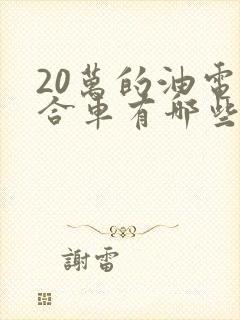 20萬的油電
合車有哪些
謝雷